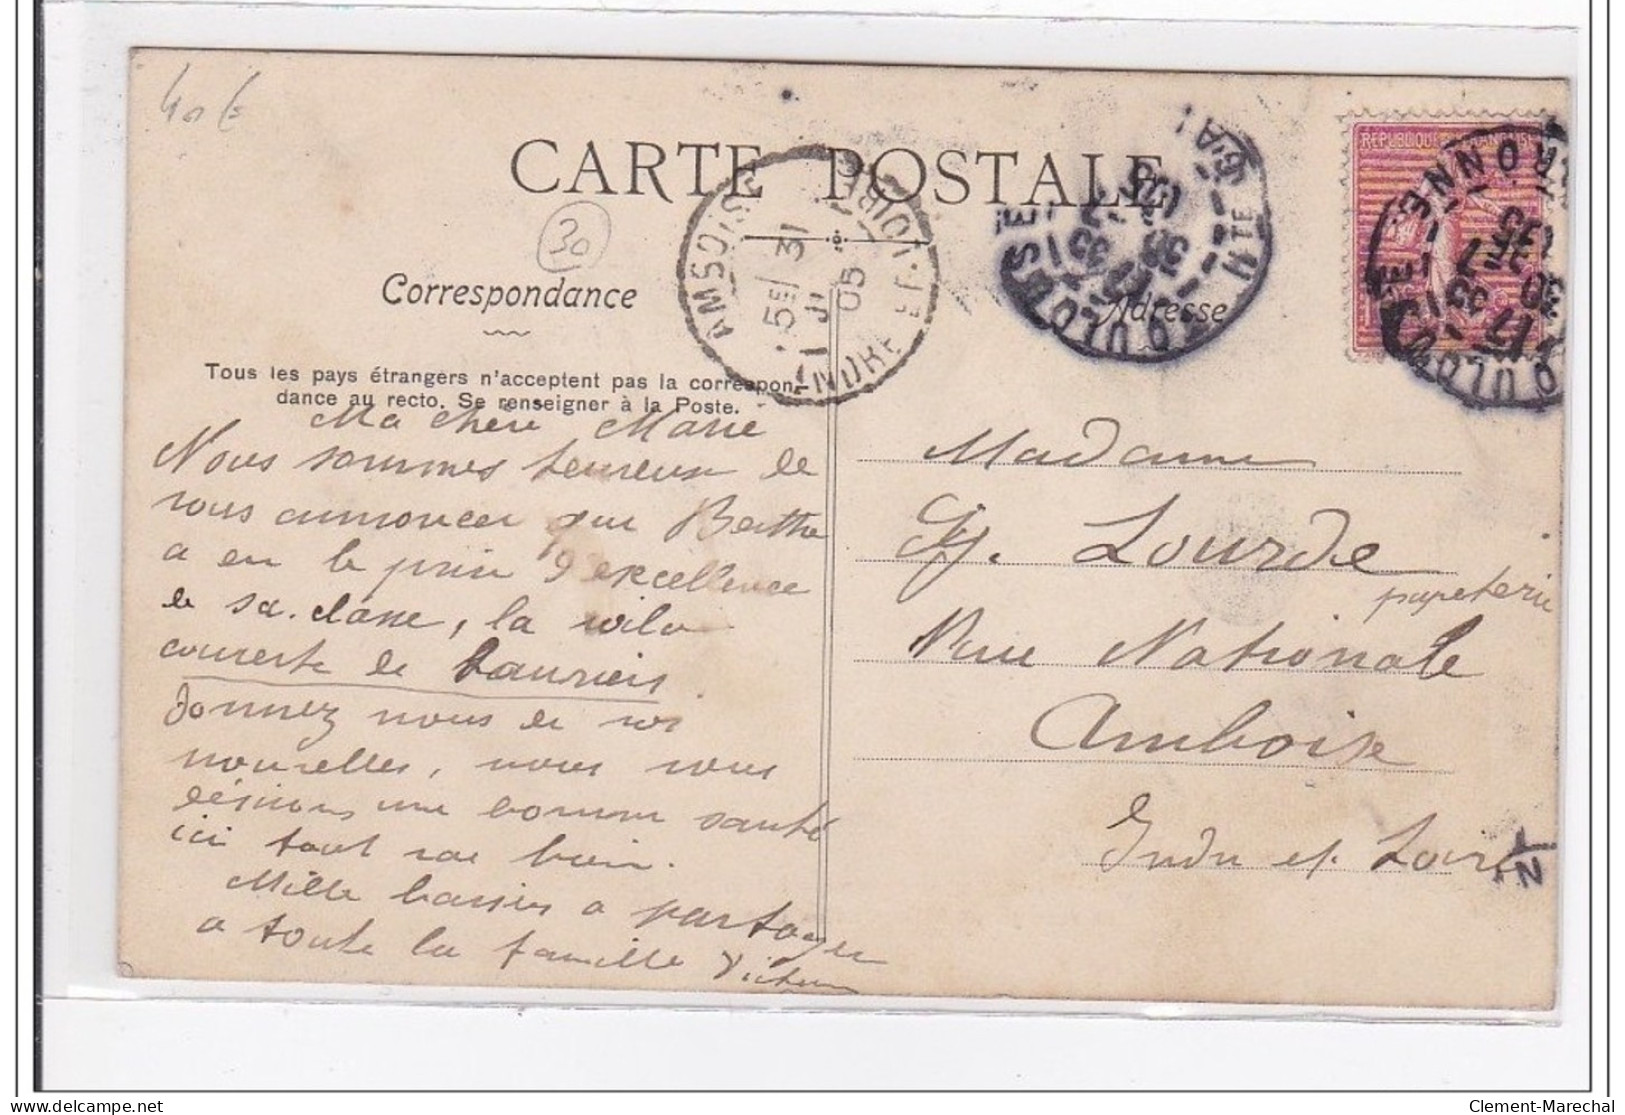 40 €
CARTE POSTALE
30
Correspondance
Adresse
Tous les pays étrangers n'acceptent pas la correspon-
dance au recto. Se renseigner à la Poste.
REPUBLIQUE FRANÇAISE
AMBOISE
INDRE-ET-LOIRE
5E 31
JL
05
TOULOUSE
HTE GARONNE
17 35
30 -7
05
TOULOUSE
GARONNE
17 35
30 -7
05
Ma chère Marie
Nous sommes heureux de
vous annoncer que Berthe
a eu le prix d'excellence
de sa classe, la voila
couverte de Lauriers.
Donnez nous de vos
nouvelles, nous vous
désirons une bonne santé
ici tout va bien.
Mille baisers a partager
a toute la famille
Madame
G. Lourde
papeterie
Rue Nationale
Amboise
Indre et Loire
12
delcampe.net
Clement-Marechal